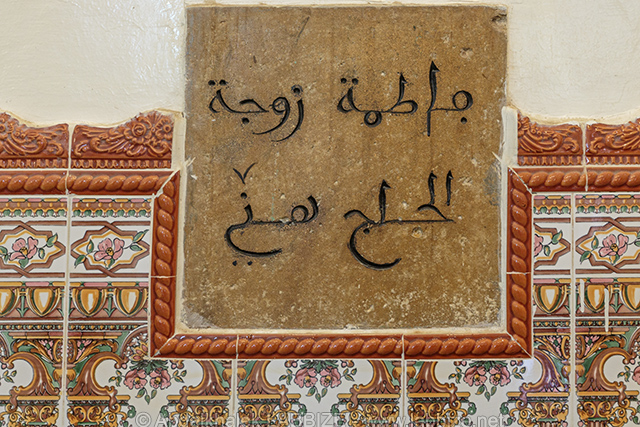 ڢاطمة زوجة
الحاج هنيّ